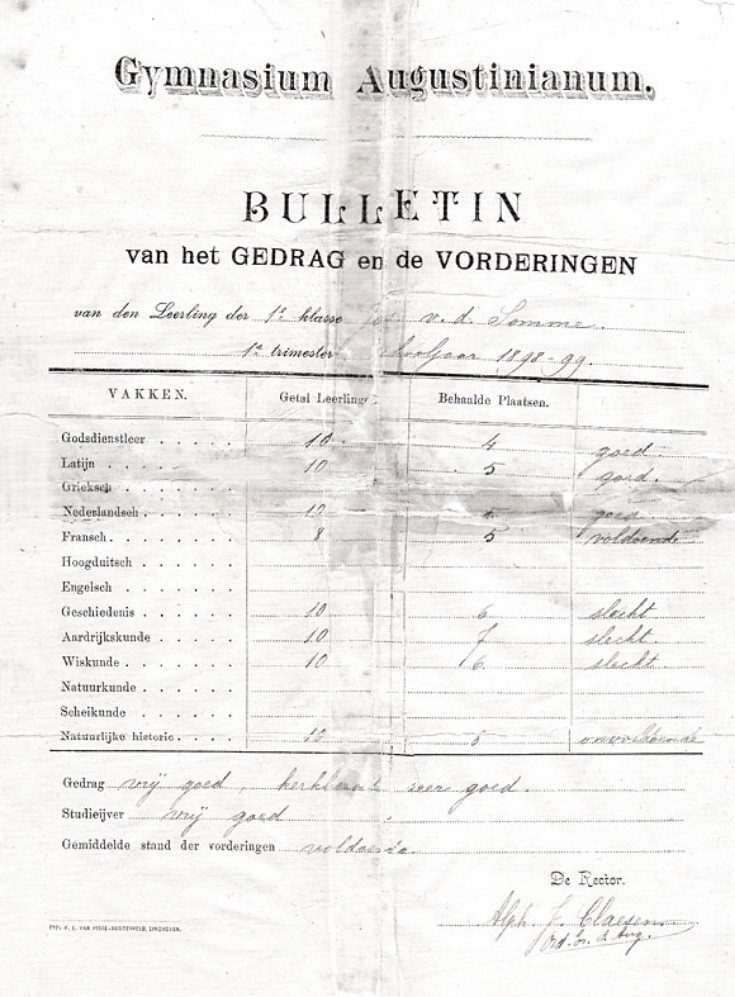 Gymnasium Augustinianum.
BULLETIN
van het GEDRAG en de VORDERINGEN
van den Leerling der 1e klasse v. d. Somme.
1e trimester Schooljaar 1898-99.
VAKKEN. Getal Leerlingen. Behaalde Plaatsen.
Godsdienstleer . . . . . 10 4 goed.
Latijn . . . . 10 5 goed.
Grieksch . . . . . . .
Nederlandsch . . . . . 10 goed
Fransch . . . . . . . . 8 5 voldoende
Hoogduitsch . . . . . .
Engelsch . . . . . . .
Geschiedenis . . . . . 10 6 slecht
Aardrijkskunde . . . . . 10 7 slecht.
Wiskunde . . . . . . 10 6. slecht.
Natuurkunde . . . . .
Scheikunde . . . . . .
Natuurlijke historie . . . . 10 onvoldoende
Gedrag vrij goed, zeer goed.
Studieijver vrij goed
Gemiddelde stand der vorderingen voldoende
De Rector.
Alph. J. Claesen
Ord. Er. S. Aug.
EINDHOVEN.